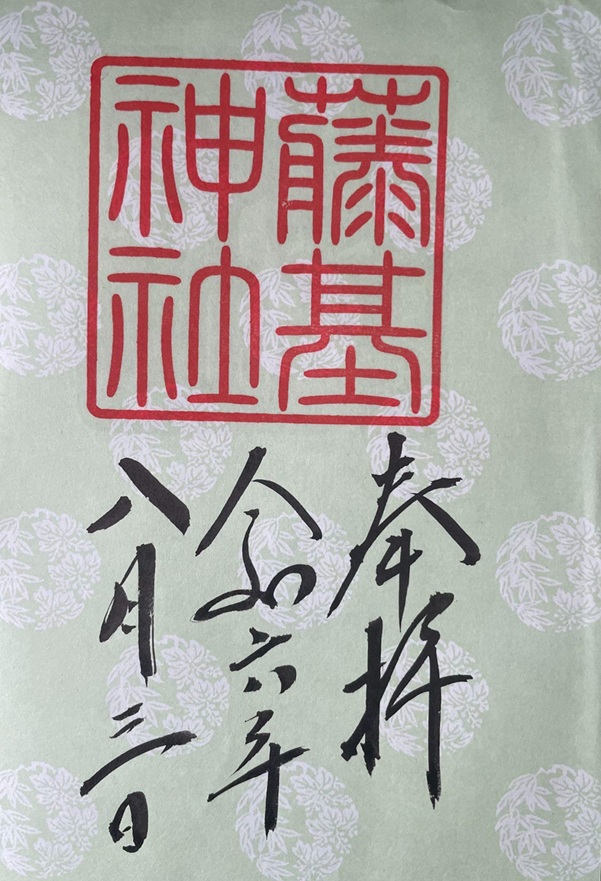 藤基
神社
奉拝
令和六年
八月三日